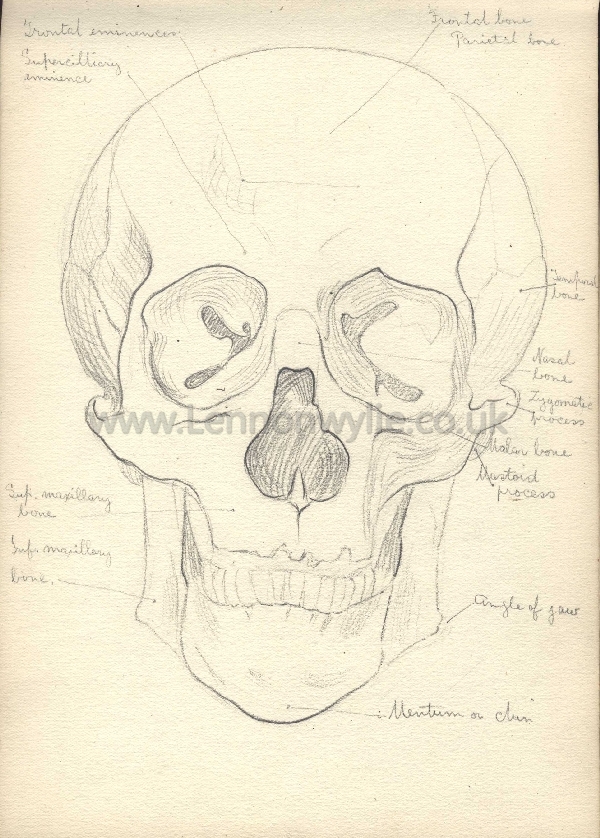 Frontal eminences
Superciliary
eminence
Frontal bone
Parietal bone
Temporal
bone
Nasal
bone
Zygomatic
process
Malar bone
Mastoid
process
www.Lennonwylie.co.uk
Sup. maxillary
bone
Inf. maxillary
bone.
Angle of jaw
Mentum or chin